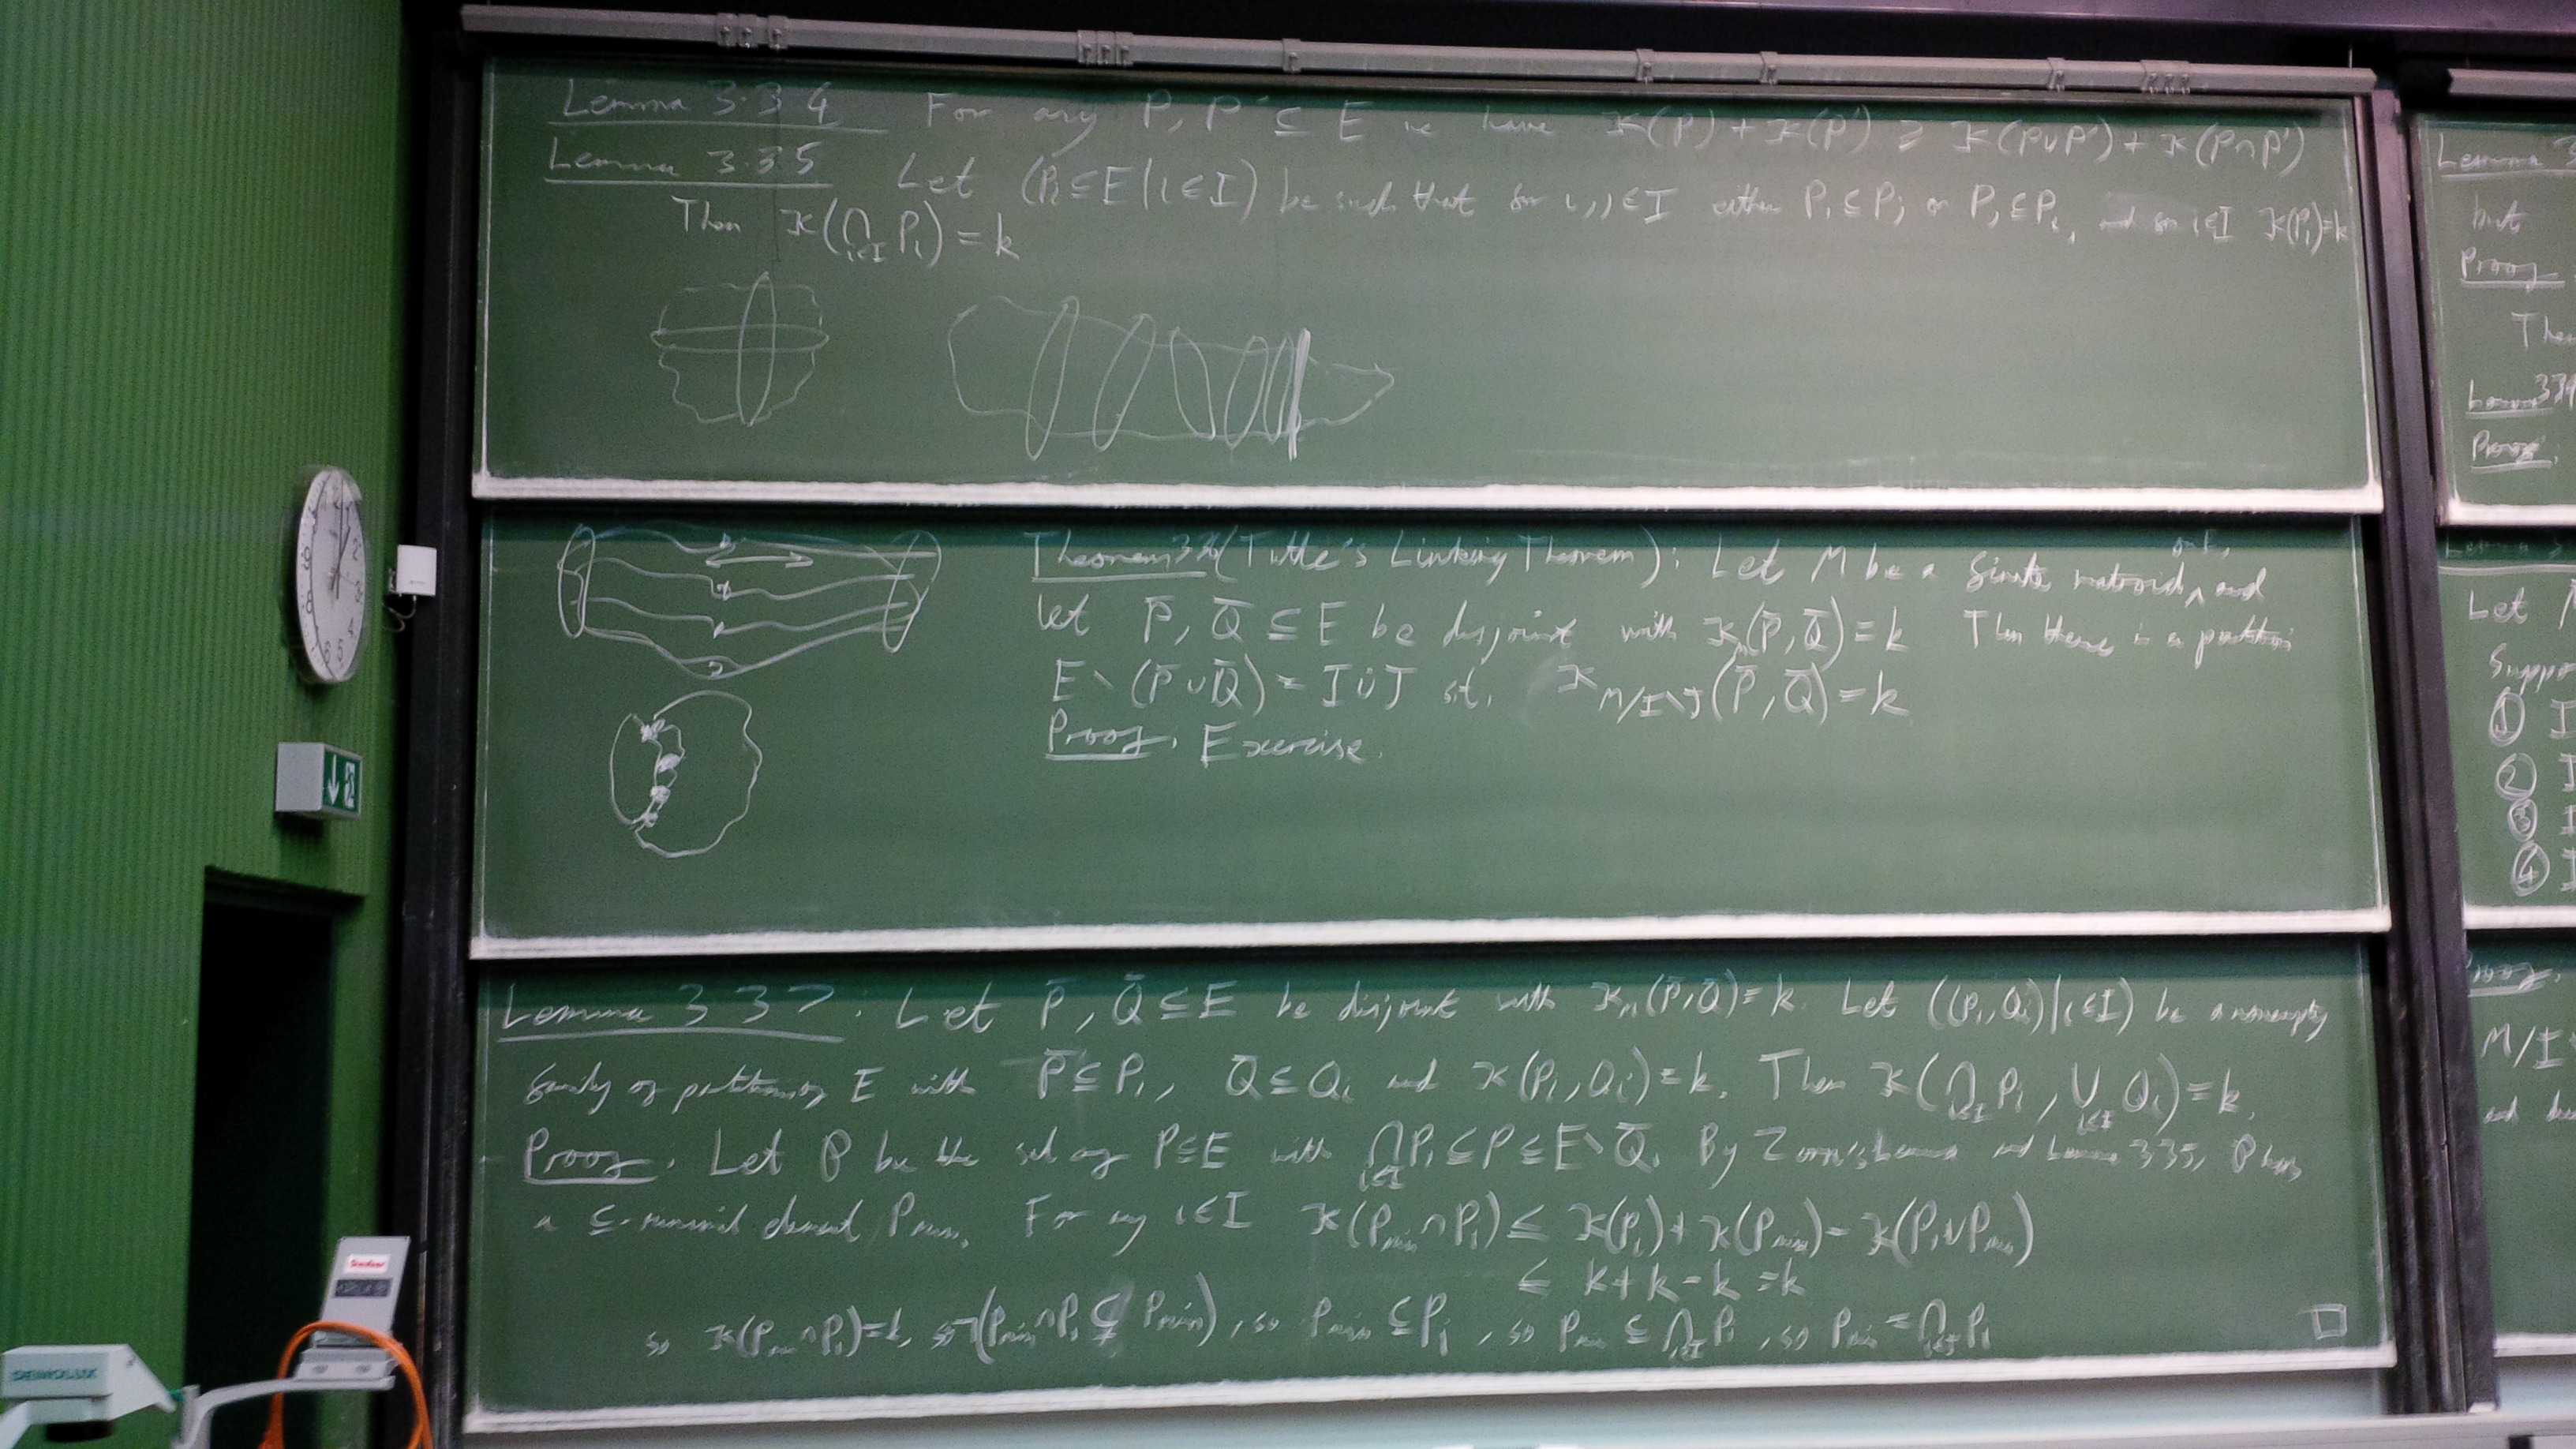 Lemma 3.3.4 For any P, P' ⊆ E we have κ(P) + κ(P') ≥ κ(P∪P') + κ(P∩P')
Lemma 3.3.5 Let (P_i ⊆ E | i ∈ I) be such that for i, j ∈ I either P_i ⊆ P_j or P_j ⊆ P_i, and for i ∈ I κ(P_i) = k
Then κ(⋂_{i∈I} P_i) = k
Theorem 3.3.6 (Tutte's Linking Theorem): Let M be a finite matroid on E, and
let P̄, Q̄ ⊆ E be disjoint with κ_M(P̄, Q̄) = k Then there is a partition
E \ (P̄ ∪ Q̄) = I ∪̇ J st. κ_{M/I\J}(P̄, Q̄) = k
Proof: Exercise.
Lemma 3.3.7: Let P̄, Q̄ ⊆ E be disjoint with κ_M(P̄, Q̄) = k. Let ((P_i, Q_i) | i ∈ I) be a nonempty
family of partitions of E with P̄ ⊆ P_i, Q̄ ⊆ Q_i and κ(P_i, Q_i) = k. Then κ(⋂_{i∈I} P_i, ⋃_{i∈I} Q_i) = k.
Proof: Let P be the set of P ⊆ E with ⋂_{i∈I} P_i ⊆ P ⊆ E \ Q̄. By Zorn's Lemma and Lemma 3.3.5, P has
a ⊆-minimal element P_min. For any i ∈ I κ(P_min ∩ P_i) ≤ κ(P_i) + κ(P_min) - κ(P_i ∪ P_min)
≤ k + k - k = k
so κ(P_min ∩ P_i) = k, so ¬(P_min ∩ P_i ⊊ P_min), so P_min ⊆ P_i, so P_min ⊆ ⋂_{i∈I} P_i, so P_min = ⋂_{i∈I} P_i □
Lemma
but
Proof
Lemma 3.3.9
Proof.
Let
①
②
③
④
M/I
and